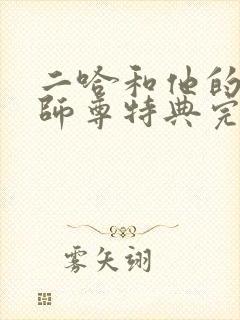 二哈和他的
師尊特典完
雾矢翊